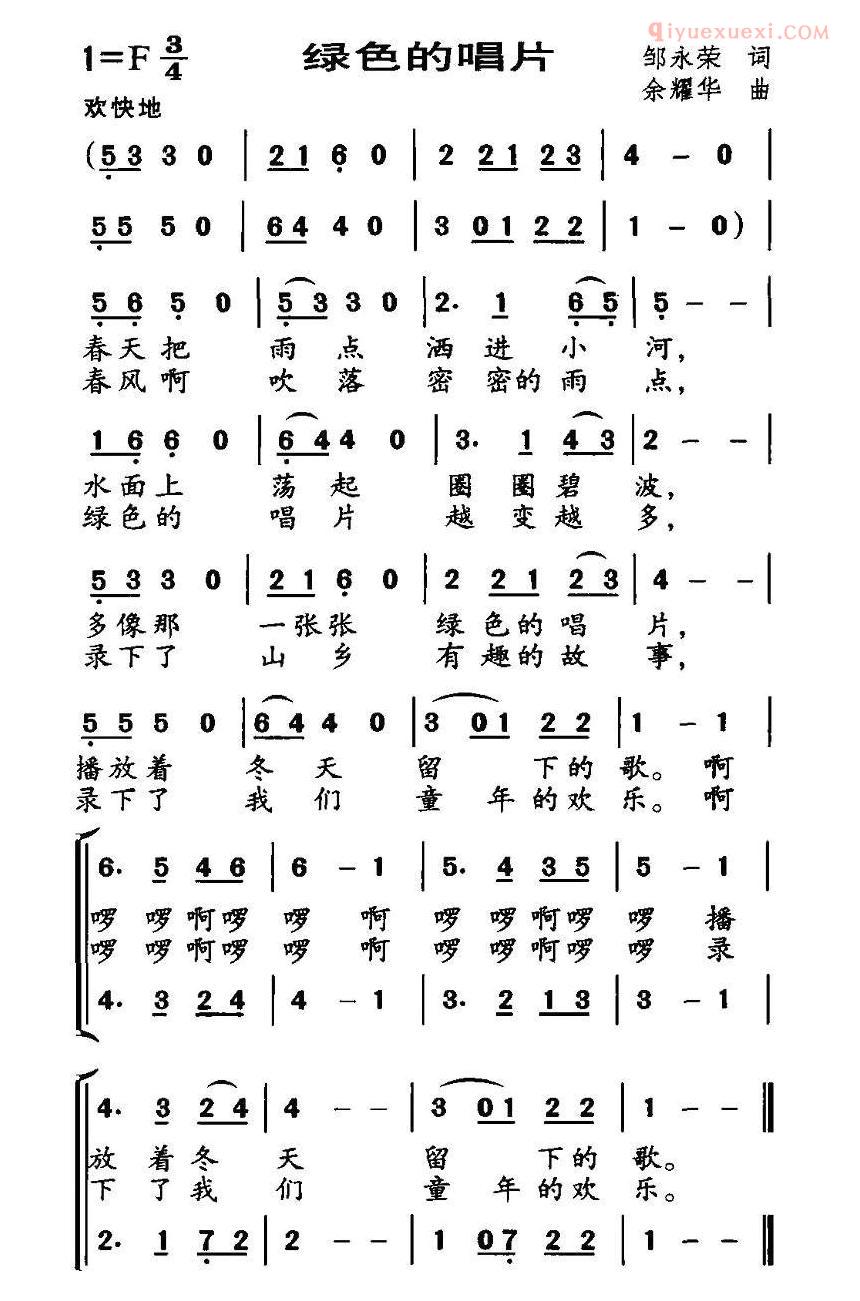 qiyuexuexi.com
1=F 3/4 绿色的唱片 邹永荣 词
余耀华 曲
欢快地
(5 3 3 0 | 2 1 6 0 | 2 2 1 2 3 | 4 - 0 |
5 5 5 0 | 6 4 4 0 | 3 0 1 2 2 | 1 - 0) |
5 6 5 0 | 5 3 3 0 | 2. 1 6 5 | 5 - - |
春天把 雨点 洒进小河,
春风啊 吹落 密密的雨点,
1 6 6 0 | 6 4 4 0 | 3. 1 4 3 | 2 - - |
水面上 荡起 圈圈碧波,
绿色的 唱片 越变越多,
5 3 3 0 | 2 1 6 0 | 2 2 1 2 3 | 4 - - |
多像那 一张张 绿色的唱片,
录下了 山乡 有趣的故事,
5 5 5 0 | 6 4 4 0 | 3 0 1 2 2 | 1 - 1 |
播放着 冬天 留下的歌。啊
录下了 我们 童年的欢乐。啊
6. 5 4 6 | 6 - 1 | 5. 4 3 5 | 5 - 1 |
啰 啰啊啰 啰 啊 啰 啰啊啰 啰 播
啰 啰啊啰 啰 啊 啰 啰啊啰 啰 录
4. 3 2 4 | 4 - 1 | 3. 2 1 3 | 3 - 1 |
4. 3 2 4 | 4 - - | 3 0 1 2 2 | 1 - - ‖
放着冬天 留下的歌。
下了我们 童年的欢乐。
2. 1 7 2 | 2 - - | 1 0 7 2 2 | 1 - - ‖